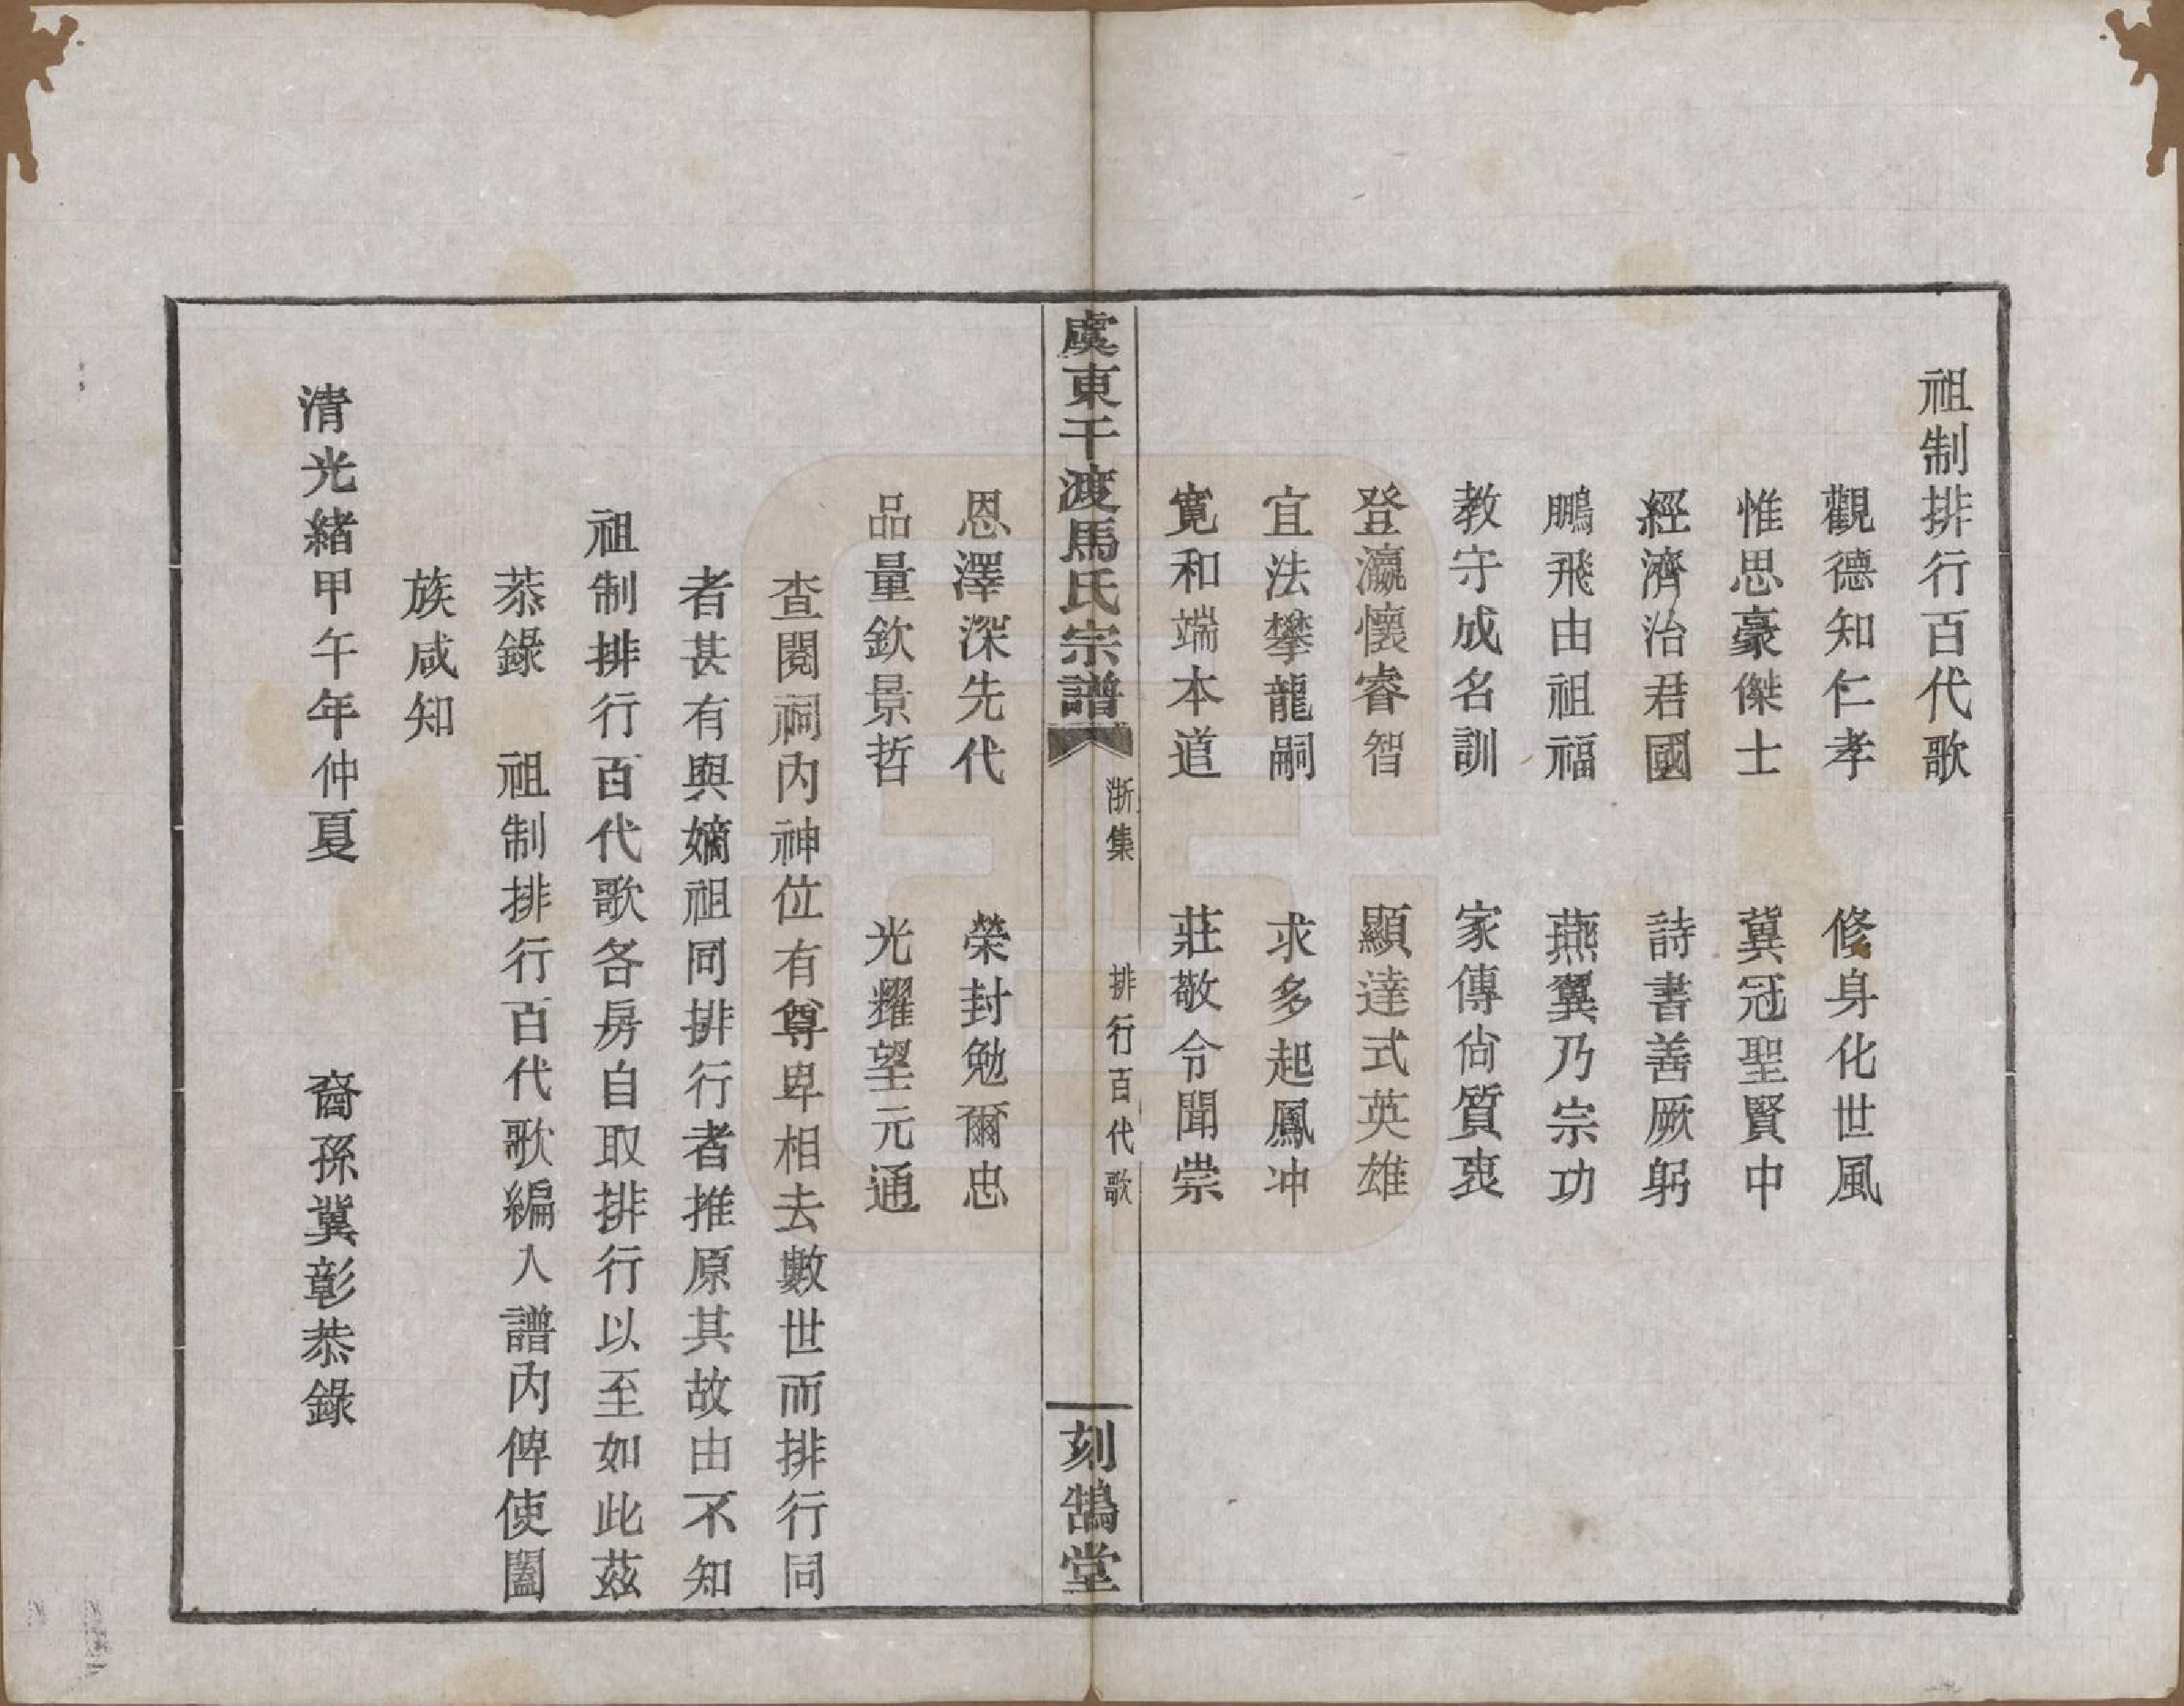 祖制排行百代歌
觀德知仁孝　修身化世風
惟思豪傑士　冀冠聖賢中
經濟治君國　詩書善厥躬
鵬飛由祖福　燕翼乃宗功
教守成名訓　家傳尙質衷
登瀛懷睿智　顯達式英雄
宜法攀龍嗣　求多起鳳冲
寬和端本道　莊敬令聞崇
虞東干渡馬氏宗譜　浙集　排行百代歌　刻鵠堂
恩澤深先代　榮封勉爾忠
品量欽景哲　光耀望元通
查閱祠内神位有尊卑相去數世而排行同
者甚有與嫡祖同排行者推原其故由不知
祖制排行百代歌各房自取排行以至如此茲
恭錄　祖制排行百代歌編入譜内俾使闔
族咸知
清光緒甲午年仲夏　裔孫冀彰恭錄